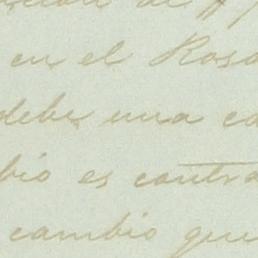 en el Rosa
debe una ca
bio es contra
cambio que